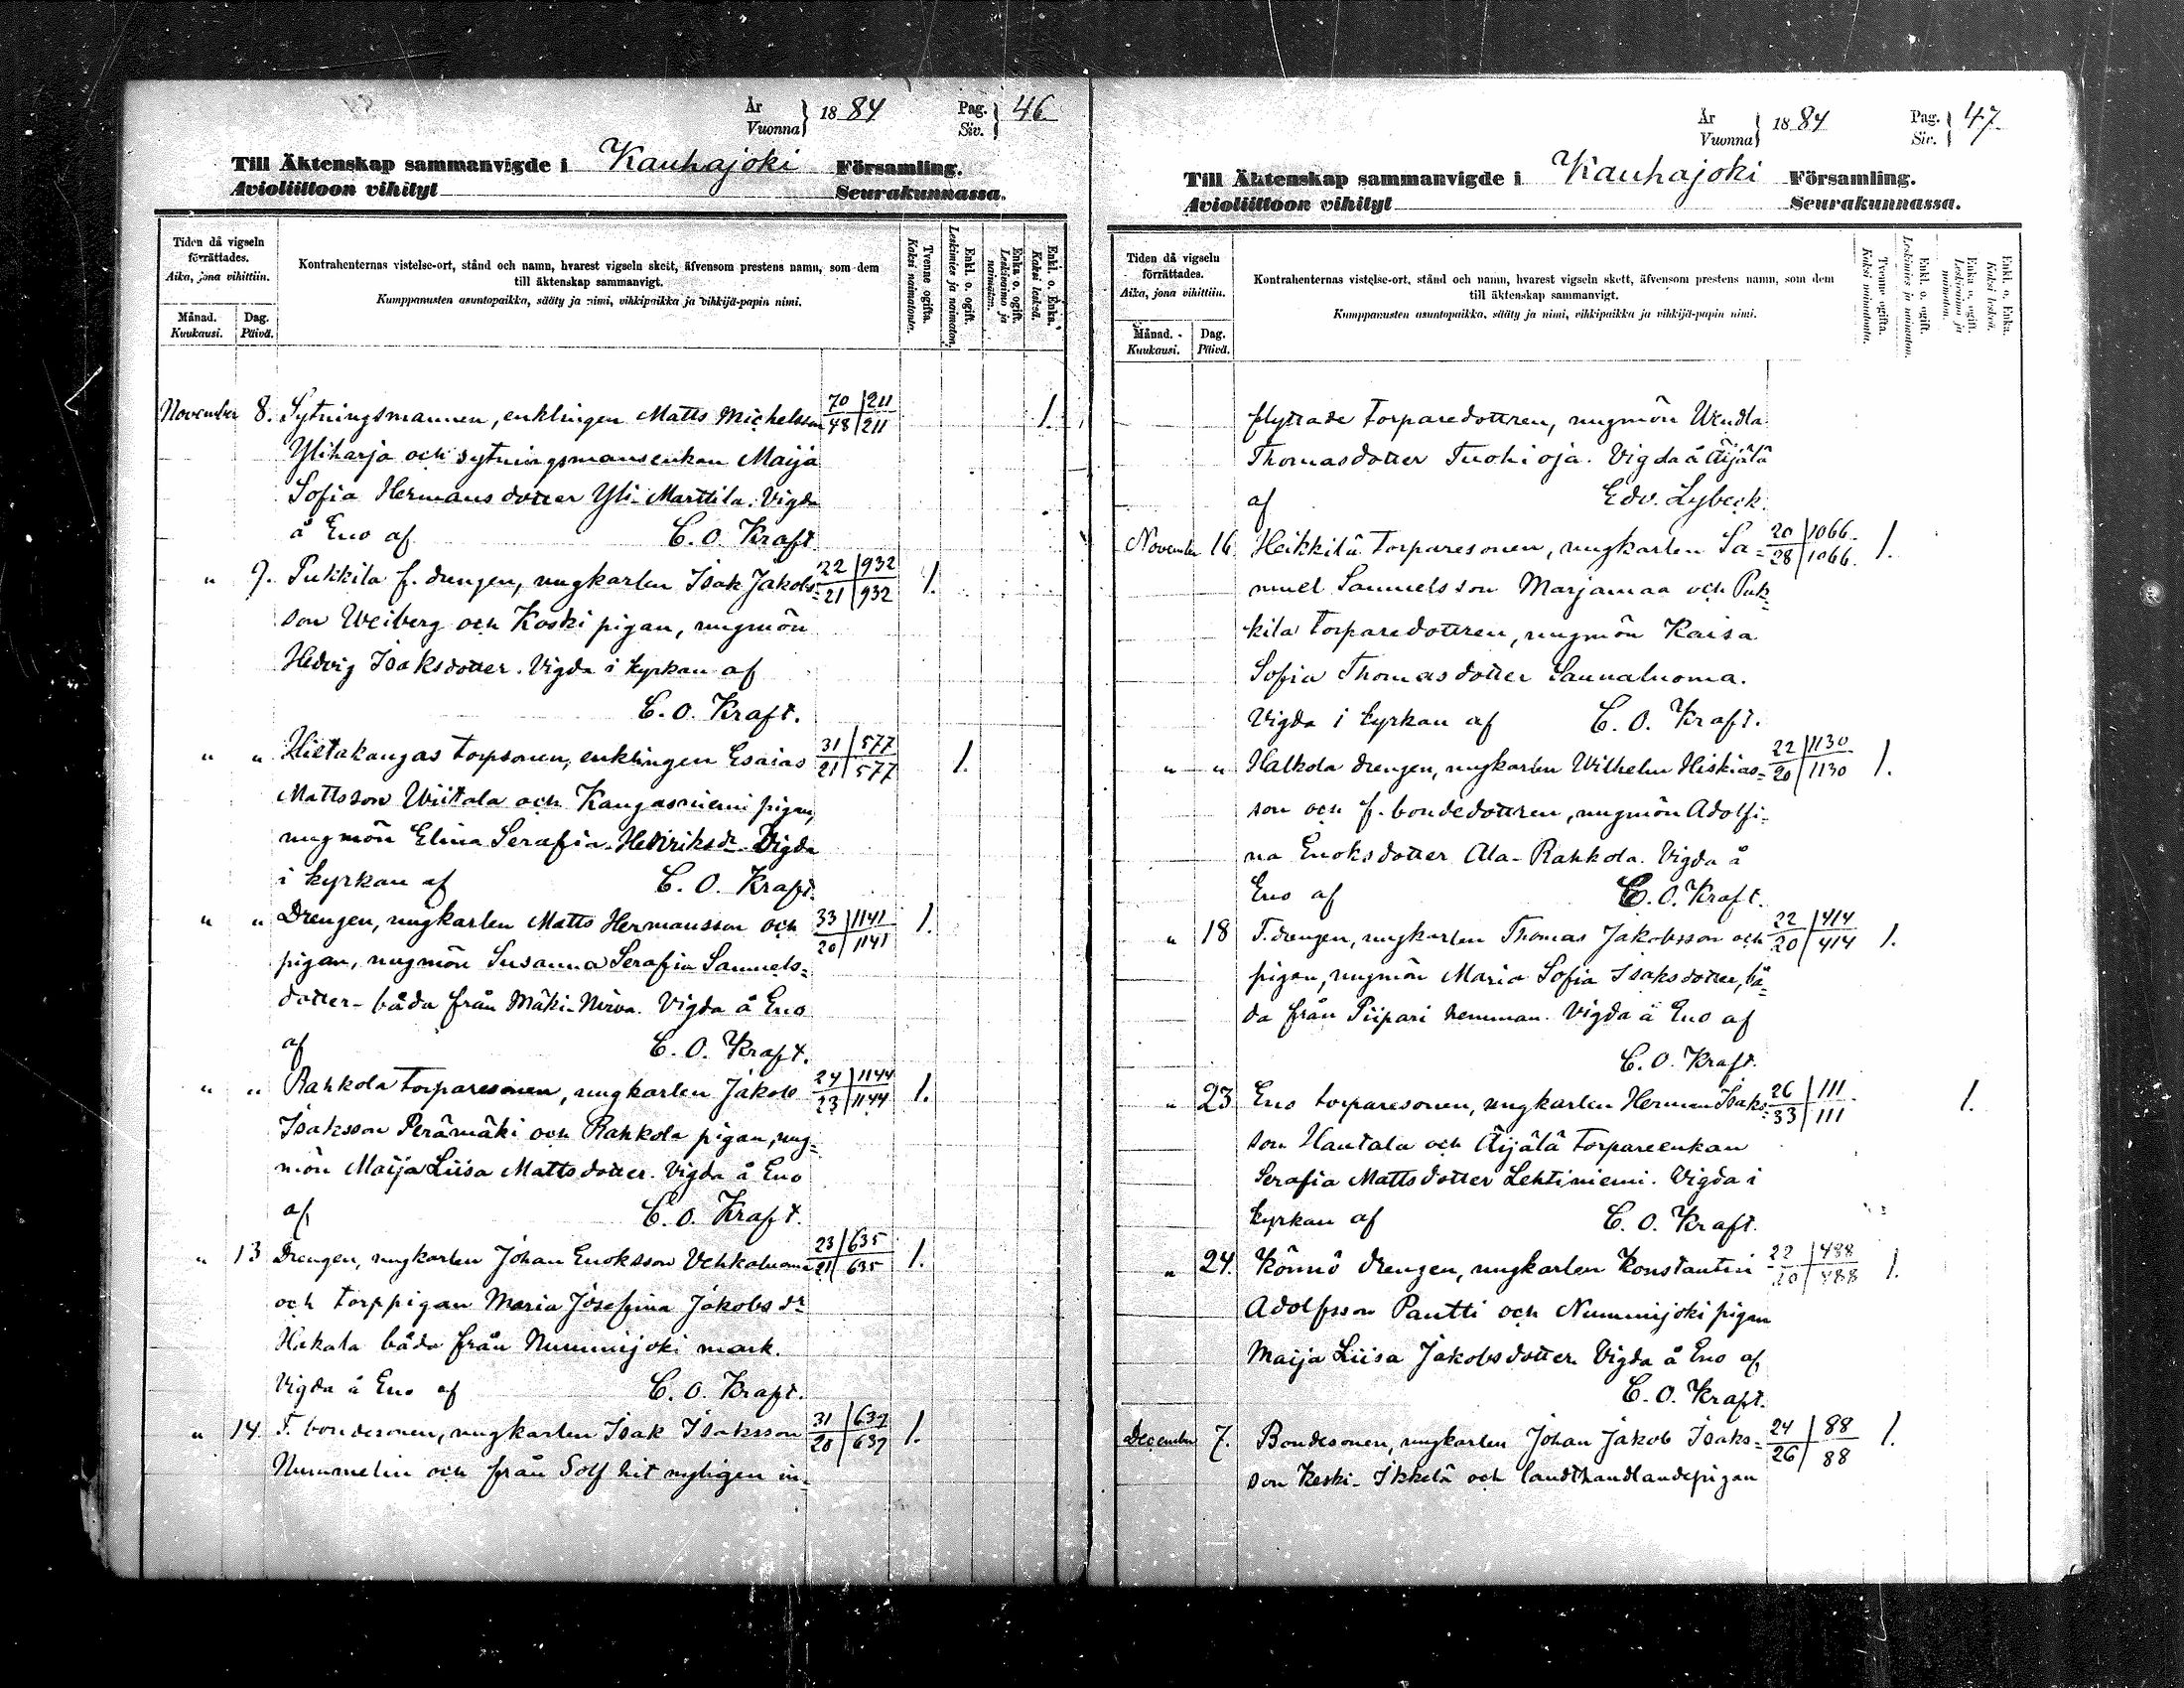 År
Vuonna
1884
Pag.
Siv.
46
Till Äktenskap sammanvigde i Kauhajoki Församling.
Avioliittoon vihityt Seurakunnassa.
Tiden då vigseln
förrättades.
Aika, jona vihittiin.
Månad.
Kuukausi.
Dag.
Päivä.
Kontrahenternas vistelse-ort, stånd och namn, hvarest vigseln skett, äfvensom prestens namn, som dem
till äktenskap sammanvigt.
Kumppanusten asuntopaikka, sääty ja nimi, vihkipaikka ja vihkijä-papin nimi.
Tvenne ogifta.
Kaksi naimatonta.
Enkl. o. ogift.
Leskimies ja naimaton.
Enka o. ogift.
Leskivaimo ja
naimaton.
Enkl. o. Enka.
Kaksi leskeä.
November 8. Sytningsmannen, enklingen Matts Michelsson 70 211 1.
48 211
Yliharja och sytningsmansenkan Maija
Sofia Hermansdotter Yli-Marttila. Vigda
å Eno af C. O. Kraft.
" 9. Pukkila f. drengen, ungkarlen Isak Jakobs= 22 932 1.
21 932
son Weiberg och Koski pigan, ungmön
Hedvig Isaksdotter. Vigda i kyrkan af
C. O. Kraft.
" " Hietakangas torpsonen, enklingen Esaias 31 577 1.
21 577
Mattsson Wiitala och Kangasniemi pigan,
ungmön Elina Serafia Henriksdr. Vigda
i kyrkan af C. O. Kraft.
" " Drengen, ungkarlen Matts Hermansson och 33 1141 1.
20 1141
pigan, ungmön Susanna Serafia Samuels=
dotter - båda från Mäki-Nirva. Vigda å Eno
af C. O. Kraft.
" " Rahkola torparesonen, ungkarlen Jakob 24 1144 1.
23 1144
Isaksson Perämäki och Rahkola pigan, ung=
mön Maija Liisa Mattsdotter. Vigda å Eno
af C. O. Kraft.
" 13 Drengen, ungkarlen Johan Enoksson Vehkaluoma 23 635 1.
21 635
och torppigan Maria Josefina Jakobsdr
Hakala båda från Nummijoki mark.
Vigda å Eno af C. O. Kraft.
" 14. F. bondesonen, ungkarlen Isak Isaksson 31 639 1.
20 639
Nummelin och från Solf hit nyligen in=
År
Vuonna
1884
Pag.
Siv.
47
Till Äktenskap sammanvigde i Kauhajoki Församling.
Avioliittoon vihityt Seurakunnassa.
Tiden då vigseln
förrättades.
Aika, jona vihittiin.
Månad.
Kuukausi.
Dag.
Päivä.
Kontrahenternas vistelse-ort, stånd och namn, hvarest vigseln skett, äfvensom prestens namn, som dem
till äktenskap sammanvigt.
Kumppanusten asuntopaikka, sääty ja nimi, vihkipaikka ja vihkijä-papin nimi.
Tvenne ogifta.
Kaksi naimatonta.
Enkl. o. ogift.
Leskimies ja naimaton.
Enka o. ogift.
Leskivaimo ja
naimaton.
Enkl. o. Enka.
Kaksi leskeä.
flyttade torparedottren, ungmön Wendla
Thomasdotter Tuohioja. Vigda å Äijälä
af Edv. Lybeck.
November 16. Heikkilä torparesonen, ungkarlen Sa= 20 1066. 1.
28 1066.
muel Samuelsson Marjamaa och Puk=
kila torparedottren, ungmön Kaisa
Sofia Thomasdotter Saunaluoma.
Vigda i kyrkan af C. O. Kraft.
" " Halkola drengen, ungkarlen Wilhelm Hiskias= 22 1130 1.
20 1130
son och f. bondedottren, ungmön Adolfi-
na Enoksdotter Ala-Rahkola. Vigda å
Eno af C. O. Kraft.
" 18 F. drengen, ungkarlen Thomas Jakobsson och 22 414 1.
20 414
pigan, ungmön Maria Sofia Isaksdotter, bå=
da från Piipari hemman. Vigda å Eno af
C. O. Kraft.
" 23 Eno torparesonen, ungkarlen Herman Isaks= 26 111 1.
33 111
son Hautala och Äijälä torpareenkan
Serafia Mattsdotter Lehtiniemi. Vigda i
kyrkan af C. O. Kraft.
" 24. Könnö drengen, ungkarlen Konstantin 22 488 1.
20 488
Adolfsson Pantti och Nummijoki pigan
Maija Liisa Jakobsdotter. Vigda å Eno af
C. O. Kraft.
December 7. Bondesonen, ungkarlen Johan Jakob Isaks= 24 88 1.
26 88
son Keski-Ikkelä och landthandlandepigan